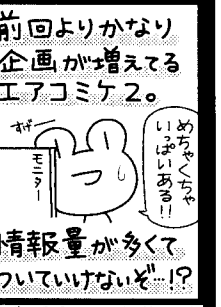 前回よりかなり
企画が増えてる
エアコミケ2。
すげー
めちゃくちゃ
いっぱいある!!
モニター
情報量が多くて
ついていけないぞ…!?